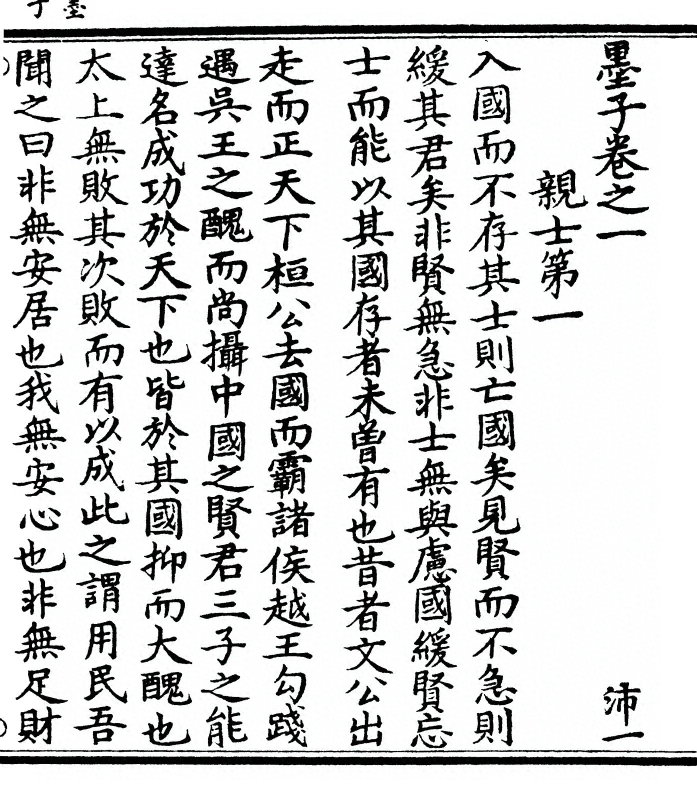 墨子卷之一
沛一
親士第一
入國而不存其士則亡國矣見賢而不急則
緩其君矣非賢無急非士無與慮國緩賢忘
士而能以其國存者未曽有也昔者文公出
走而正天下桓公去國而霸諸侯越王勾踐
遇吳王之醜而尚攝中國之賢君三子之能
達名成功於天下也皆於其國抑而大醜也
太上無敗其次敗而有以成此之謂用民吾
聞之曰非無安居也我無安心也非無足財
墨子